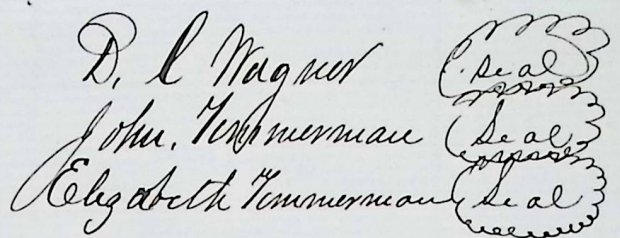 D. C Wagner (Seal)
John. Timmerman (Seal)
Elizabeth Timmerman (Seal)